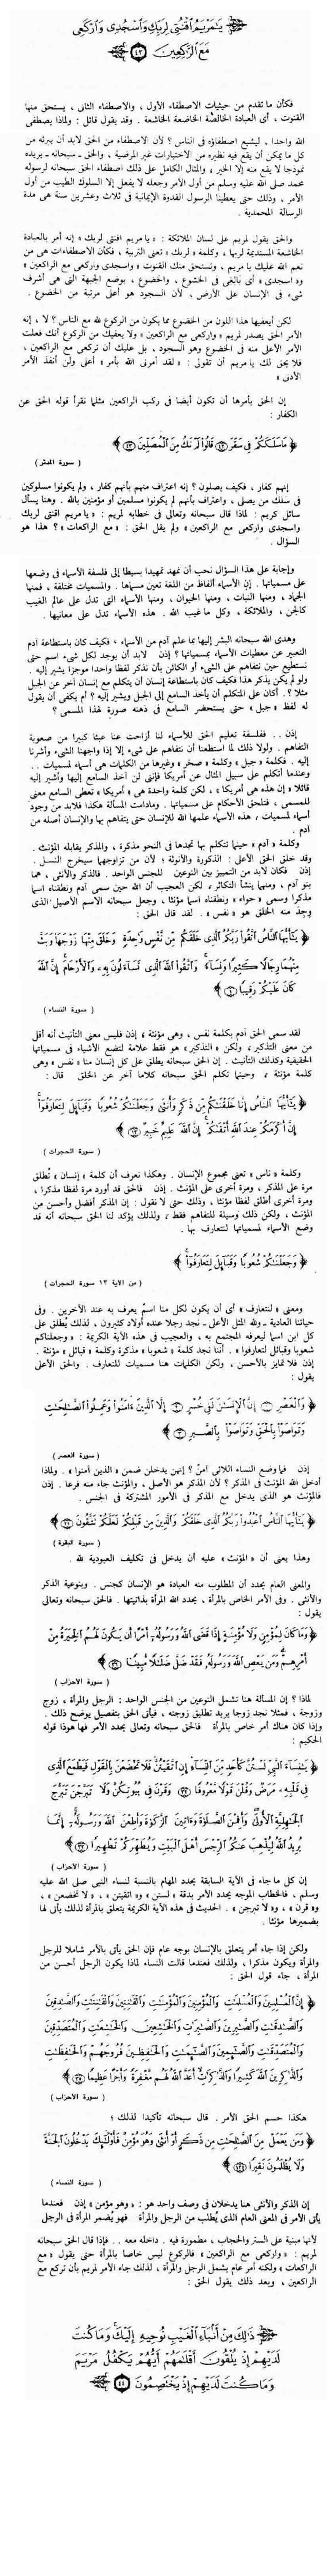 يَٰمَرْيَمُ ٱقْنُتِى لِرَبِّكِ وَٱسْجُدِى وَٱرْكَعِى
مَعَ ٱلرَّٰكِعِينَ ﴿٤٣﴾
فكأن ما تقدم من حيثيات الاصطفاء الأول ، والاصطفاء الثانى ، يستحق منها
القنوت ، أى العبادة الخالصة الخاضعة الخاشعة . وقد يقول قائل : ولماذا يصطفى
الله واحدا ، ليشيع اصطفاؤه فى الناس ؟ لأن الاصطفاء من الحق لابد أن يبرئه من
كل ما يمكن أن يقع فيه نظيره من الاختيارات غير المرضية ، والحق ـ سبحانه ـ يريده
نموذجا لا يقع منه إلا الخير ، والمثال الكامل على ذلك اصطفاء الحق سبحانه لرسوله
محمد صلى الله عليه وسلم من أول الأمر وجعله لا يفعل إلا السلوك الطيب من أول
الأمر ، وذلك حتى يعطينا الرسول القدوة الإيمانية فى ثلاث وعشرين سنة هى مدة
الرسالة المحمدية .
والحق يقول لمريم على لسان الملائكة : « يا مريم اقنتى لربك » إنه أمر بالعبادة
الخاشعة المستديمة لربها ، وكلمة « لربك » تعنى التربية ، فكأن الاصطفاءات هى من
نعم الله عليك يا مريم ، وتستحق منك القنوت « واسجدى واركعى مع الراكعين »
و« اسجدى » أى بالغى فى الخشوع ، والخضوع ، بوضع الجبهة التى هى أشرف
شىء فى الإنسان على الأرض ، لأن السجود هو أعلى مرتبة من الخضوع .
لكن أيعفيها هذا اللون من الخضوع مما يكون من الركوع لله مع الناس ؟ لا ، إنه
الأمر الحق يصدر لمريم « واركعى مع الراكعين » ولا يعفيك من الركوع أنك فعلت
الأمر الأعلى منه فى الخضوع وهو السجود ، بل عليك أن تركعى مع الراكعين ،
فلا يحق لك يا مريم أن تقولى : « لقد أمرنى الله بأمر » أعلى ولن أنفذ الأمر
الأدنى »
إن الحق يأمرها أن تكون أيضا فى ركب الراكعين مثلما نقرأ قوله الحق عن
الكفار :
﴿ مَاسَلَكَكُمْ فِى سَقَرَ ﴿٤٢﴾ قَالُوا۟ لَمْ نَكُ مِنَ ٱلْمُصَلِّينَ ﴿٤٣﴾ ﴾
( سورة المدثر )
إنهم كفار ، فكيف يصلون ؟ إنه اعتراف منهم بأنهم كفار ، ولم يكونوا مسلوكين
فى سلك من يصلى ، واعتراف بأنهم لم يكونوا مسلمين أو مؤمنين بالله . وهنا يسأل
سائل كريم : لماذا قال سبحانه وتعالى فى خطابه لمريم : « يا مريم اقنتى لربك
واسجدى واركعى مع الراكعين » ولم يقل الحق : « مع الراكعات » ؟ هذا هو
السؤال .
وإجابة على هذا السؤال نحب أن نمهد تمهيدا بسيطا إلى فلسفة الأسماء فى وضعها
على مسمياتها . إن الأسماء ألفاظ من اللغة تعين مسماها . والمسميات مختلفة ، فمنها
الجماد ، ومنها النبات ، ومنها الحيوان ، ومنها الأسماء التى تدل على عالم الغيب
كالجن ، والملائكة ، وكل ما غيب الله . هذه الأسماء تدل على معانيها .
وهدى الله سبحانه البشر إليها بما علم آدم من الأسماء ، فكيف كان باستطاعة آدم
التعبير عن معطيات الأسماء بمسمياتها ؟ إذن لابد أن يوجد لكل شىء اسم حتى
نستطيع حين نتفاهم على الشىء أو الكائن بأن نذكر لفظا واحدا موجزا يشير إليه .
ولو لم يكن يذكر هذا فكيف كان باستطاعة إنسان أن يتكلم مع إنسان آخر عن الجبل
مثلا ؟ . أكان على المتكلم أن يأخذ السامع إلى الجبل ويشير إليه ؟ أم يكفى أن يقول
له لفظ « جبل » حتى يستحضر السامع فى ذهنه صورة لهذا المسمى ؟
إذن .. ففلسفة تعليم الحق للأسماء لنا أزاحت عنا عبئا كبيرا من صعوبة
التفاهم . ولولا ذلك لما استطعنا أن نتفاهم على شىء إلا إذا واجهنا الشىء وأشرنا
إليه . فكلمة « جبل » وكلمة « صخر » وغيرها من الكلمات هى أسماء لمسميات ..
وعندما أتكلم على سبيل المثال عن أمريكا فإننى لن آخذ السامع إليها وأشير إليه
قائلا « إن هذه هى أمريكا » ، لكن كلمة واحدة هى « أمريكا » تعطى السامع معنى
للمسمى ، فتلحق الأحكام على مسمياتها . ومادامت المسألة هكذا فلابد من وجود
أسماء لمسميات ، هذه الأسماء علمها الله للإنسان حتى يتفاهم بها والإنسان أصله من
آدم .
وكلمة « آدم » حينما نتكلم بها تجدها فى النحو مذكرة ، والمذكر يقابله المؤنث .
وقد خلق الحق الأعلى : الذكورة والأنوثة ؛ لأن من تزاوجهما سيخرج النسل .
إذن فكان لابد من التمييز بين النوعين للجنس الواحد . فالذكر والأنثى ، هما
بنو آدم ، ومنهما ينشأ التكاثر ، لكن العجيب أن الله حين سمى آدم ونطقناه اسما
مذكرا وسمى « حواء » ونطقناه اسما مؤنثا ، وجعل سبحانه الاسم الأصيل الذى
وجد منه الخلق هو « نفس » . لقد قال الحق :
﴿ يَٰٓأَيُّهَا ٱلنَّاسُ ٱتَّقُوا۟ رَبَّكُمُ ٱلَّذِى خَلَقَكُم مِّن نَّفْسٍ وَٰحِدَةٍ وَخَلَقَ مِنْهَا زَوْجَهَا وَبَثَّ
مِنْهُمَا رِجَالًا كَثِيرًا وَنِسَآءً ۚ وَٱتَّقُوا۟ ٱللَّهَ ٱلَّذِى تَسَآءَلُونَ بِهِۦ وَٱلْأَرْحَامَ ۚ إِنَّ ٱللَّهَ
كَانَ عَلَيْكُمْ رَقِيبًا ﴿١﴾ ﴾
( سورة النساء )
لقد سمى الحق آدم بكلمة نفس ، وهى مؤنثة ، إذن فليس معنى التأنيث أنه أقل
من معنى التذكير ، ولكن « التذكير » هو فقط علامة لتضع الأشياء فى مسمياتها
الحقيقية وكذلك التأنيث . إن الحق سبحانه يطلق على كل إنسان منا « نفس » وهى
كلمة مؤنثة ، وحينما تكلم الحق سبحانه كلاما آخر عن الخلق قال :
﴿ يَٰٓأَيُّهَا ٱلنَّاسُ إِنَّا خَلَقْنَٰكُم مِّن ذَكَرٍ وَأُنثَىٰ وَجَعَلْنَٰكُمْ شُعُوبًا وَقَبَآئِلَ لِتَعَارَفُوٓا۟ ۚ
إِنَّ أَكْرَمَكُمْ عِندَ ٱللَّهِ أَتْقَىٰكُمْ ۚ إِنَّ ٱللَّهَ عَلِيمٌ خَبِيرٌ ﴿١٣﴾ ﴾
( سورة الحجرات )
وكلمة « ناس » تعنى مجموع الإنسان . وهكذا نعرف أن كلمة « إنسان » تُطلق
مرة على المذكر ، ومرة أخرى على المؤنث . إذن فالحق قد أورد مرة لفظا مذكرا ،
ومرة أخرى أطلق لفظا مؤنثا ، وذلك حتى لا نقول : إن المذكر أفضل وأحسن من
المؤنث ، ولكن ذلك وسيلة للتفاهم فقط ، ولذلك يؤكد لنا الحق سبحانه أنه قد
وضع الأسماء لمسمياتها لنتعارف بها .
﴿ وَجَعَلْنَٰكُمْ شُعُوبًا وَقَبَآئِلَ لِتَعَارَفُوٓا۟ ﴾
( من الآية ١٣ سورة الحجرات )
ومعنى « لتعارف » أى أن يكون لكل منا اسمٌ يعرف به عند الآخرين . وفى
حياتنا العادية ـ ولله المثل الأعلى ـ نجد رجلا عنده أولاد كثيرون ، لذلك يُطلق على
كل ابن اسما ليعرفه المجتمع به ، والعجيب فى هذه الآية الكريمة : « وجعلناكم
شعوبا وقبائل لتعارفوا » . أننا نجد كلمة « شعوبا » مذكرة وكلمة « قبائل » مؤنثة .
إذن فلا تمايز بالأحسن ، ولكن الكلمات هنا مسميات للتعارف . والحق الأعلى
يقول :
﴿ وَٱلْعَصْرِ ﴿١﴾ إِنَّ ٱلْإِنسَٰنَ لَفِى خُسْرٍ ﴿٢﴾ إِلَّا ٱلَّذِينَ ءَامَنُوا۟ وَعَمِلُوا۟ ٱلصَّٰلِحَٰتِ
وَتَوَاصَوْا۟ بِٱلْحَقِّ وَتَوَاصَوْا۟ بِٱلصَّبْرِ ﴿٣﴾ ﴾
( سورة العصر )
إذن فما وضع النساء اللائى آمنّ ؟ إنهن يدخلن ضمن « الذين آمنوا » . ولماذا
أدخل الله المؤنث فى المذكر ؟ لأن المذكر هو الأصل ، والمؤنث جاء منه فرعا . إذن
فالمؤنث هو الذى يدخل مع المذكر فى الأمور المشتركة فى الجنس .
﴿ يَٰٓأَيُّهَا ٱلنَّاسُ ٱعْبُدُوا۟ رَبَّكُمُ ٱلَّذِى خَلَقَكُمْ وَٱلَّذِينَ مِن قَبْلِكُمْ لَعَلَّكُمْ تَتَّقُونَ ﴿٢١﴾ ﴾
( سورة البقرة )
وهذا يعنى أن « المؤنث » عليه أن يدخل فى تكليف العبودية لله .
والمعنى العام يحدد أن المطلوب منه العبادة هو الإنسان كجنس . وبنوعية الذكر
والأنثى . وفى الأمر الخاص بالمرأة ، يحدد الله المرأة بذاتيتها . فالحق سبحانه وتعالى
يقول :
﴿ وَمَا كَانَ لِمُؤْمِنٍ وَلَا مُؤْمِنَةٍ إِذَا قَضَى ٱللَّهُ وَرَسُولُهُۥٓ أَمْرًا أَن يَكُونَ لَهُمُ ٱلْخِيَرَةُ مِنْ
أَمْرِهِمْ ۗ وَمَن يَعْصِ ٱللَّهَ وَرَسُولَهُۥ فَقَدْ ضَلَّ ضَلَٰلًا مُّبِينًا ﴿٣٦﴾ ﴾
( سورة الأحزاب )
لماذا ؟ إن المسألة هنا تشمل النوعين من الجنس الواحد : الرجل والمرأة ، زوج
وزوجة ، فمثلا نجد زوجا يريد تطليق زوجته ، فيأتى الحق بتفصيل يوضح ذلك .
وإذا كان هناك أمر خاص بالمرأة فالحق سبحانه وتعالى يحدد الأمر فها هوذا قوله
الحكيم :
﴿ يَٰنِسَآءَ ٱلنَّبِىِّ لَسْتُنَّ كَأَحَدٍ مِّنَ ٱلنِّسَآءِ ۚ إِنِ ٱتَّقَيْتُنَّ فَلَا تَخْضَعْنَ بِٱلْقَوْلِ فَيَطْمَعَ ٱلَّذِى
فِى قَلْبِهِۦ مَرَضٌ وَقُلْنَ قَوْلًا مَّعْرُوفًا ﴿٣٢﴾ وَقَرْنَ فِى بُيُوتِكُنَّ وَلَا تَبَرَّجْنَ تَبَرُّجَ
ٱلْجَٰهِلِيَّةِ ٱلْأُولَىٰ ۖ وَأَقِمْنَ ٱلصَّلَوٰةَ وَءَاتِينَ ٱلزَّكَوٰةَ وَأَطِعْنَ ٱللَّهَ وَرَسُولَهُۥٓ ۚ إِنَّمَا
يُرِيدُ ٱللَّهُ لِيُذْهِبَ عَنكُمُ ٱلرِّجْسَ أَهْلَ ٱلْبَيْتِ وَيُطَهِّرَكُمْ تَطْهِيرًا ﴿٣٣﴾ ﴾
( سورة الأحزاب )
إن كل ما جاء فى الآية السابقة يحدد المهام بالنسبة لنساء النبى صلى الله عليه
وسلم ، فالخطاب الموجه يحدد الأمر بدقة « لستن » و« اتقيتن » ، « لا تخضعن » ،
و« قرن » ، و« لا تبرجن » . الحديث فى هذه الآية الكريمة يتعلق بالمرأة لذلك يأتى لها
بضميرها مؤنثا .
ولكن إذا جاء أمر يتعلق بالإنسان بوجه عام فإن الحق يأتى بالأمر شاملا للرجل
والمرأة ويكون مذكرا ، ولذلك فعندما قالت النساء لماذا يكون الرجل أحسن من
المرأة ، جاء قول الحق :
﴿ إِنَّ ٱلْمُسْلِمِينَ وَٱلْمُسْلِمَٰتِ وَٱلْمُؤْمِنِينَ وَٱلْمُؤْمِنَٰتِ وَٱلْقَٰنِتِينَ وَٱلْقَٰنِتَٰتِ وَٱلصَّٰدِقِينَ
وَٱلصَّٰدِقَٰتِ وَٱلصَّٰبِرِينَ وَٱلصَّٰبِرَٰتِ وَٱلْخَٰشِعِينَ وَٱلْخَٰشِعَٰتِ وَٱلْمُتَصَدِّقِينَ
وَٱلْمُتَصَدِّقَٰتِ وَٱلصَّٰٓئِمِينَ وَٱلصَّٰٓئِمَٰتِ وَٱلْحَٰفِظِينَ فُرُوجَهُمْ وَٱلْحَٰفِظَٰتِ
وَٱلذَّٰكِرِينَ ٱللَّهَ كَثِيرًا وَٱلذَّٰكِرَٰتِ أَعَدَّ ٱللَّهُ لَهُم مَّغْفِرَةً وَأَجْرًا عَظِيمًا ﴿٣٥﴾ ﴾
( سورة الأحزاب )
هكذا حسم الحق الأمر . قال سبحانه تأكيدا لذلك :
﴿ وَمَن يَعْمَلْ مِنَ ٱلصَّٰلِحَٰتِ مِن ذَكَرٍ أَوْ أُنثَىٰ وَهُوَ مُؤْمِنٌ فَأُو۟لَٰٓئِكَ يَدْخُلُونَ ٱلْجَنَّةَ
وَلَا يُظْلَمُونَ نَقِيرًا ﴿١٢٤﴾ ﴾
( سورة النساء )
إن الذكر والأنثى هنا يدخلان فى وصف واحد هو : « وهو مؤمن » إذن فعندما
يأتى الأمر فى المعنى العام الذى يُطلب من الرجل والمرأة فهو يُضمر المرأة فى الرجل
لأنها مبنية على الستر والحجاب ، مطمورة فيه . داخله معه .. فإذا قال الحق سبحانه
لمريم : « واركعى مع الراكعين » فالركوع ليس خاصا بالمرأة حتى يقول « مع
الراكعات » ولكنه أمر عام يشمل الرجل والمرأة ، لذلك جاء الأمر لمريم بأن تركع مع
الراكعين ، وبعد ذلك يقول الحق :
ذَٰلِكَ مِنْ أَنۢبَآءِ ٱلْغَيْبِ نُوحِيهِ إِلَيْكَ ۚ وَمَا كُنتَ
لَدَيْهِمْ إِذْ يُلْقُونَ أَقْلَٰمَهُمْ أَيُّهُمْ يَكْفُلُ مَرْيَمَ
وَمَا كُنتَ لَدَيْهِمْ إِذْ يَخْتَصِمُونَ ﴿٤٤﴾